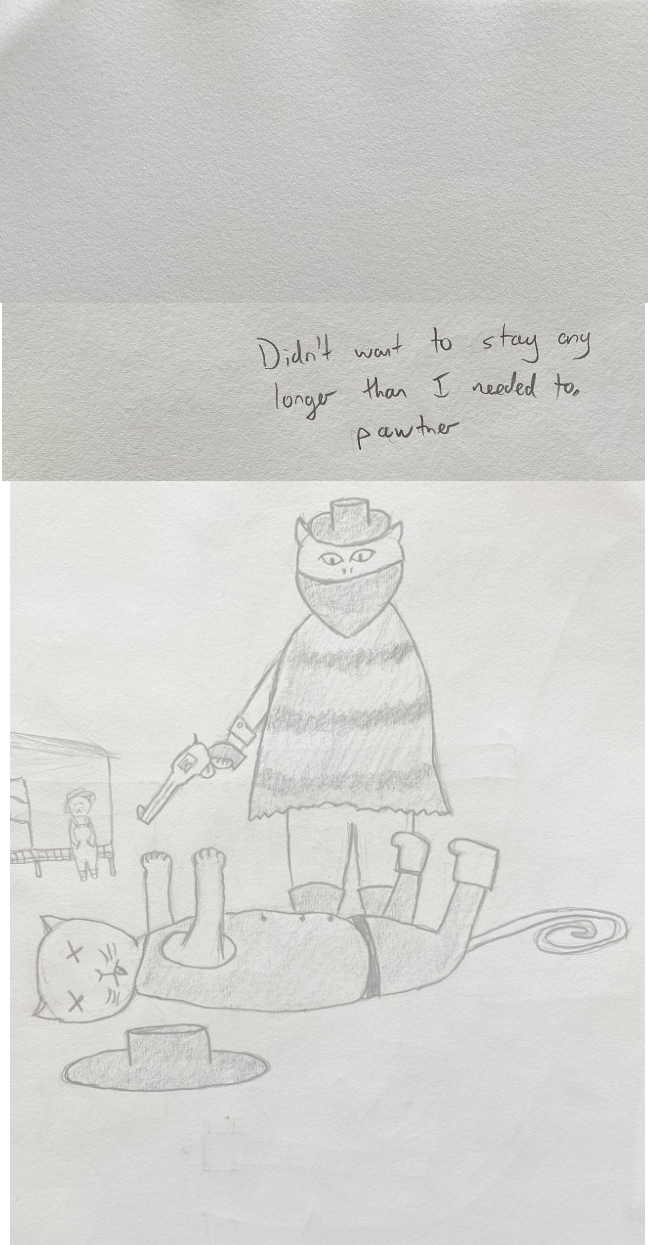 Didn't want to stay any
longer than I needed to.
pawtner